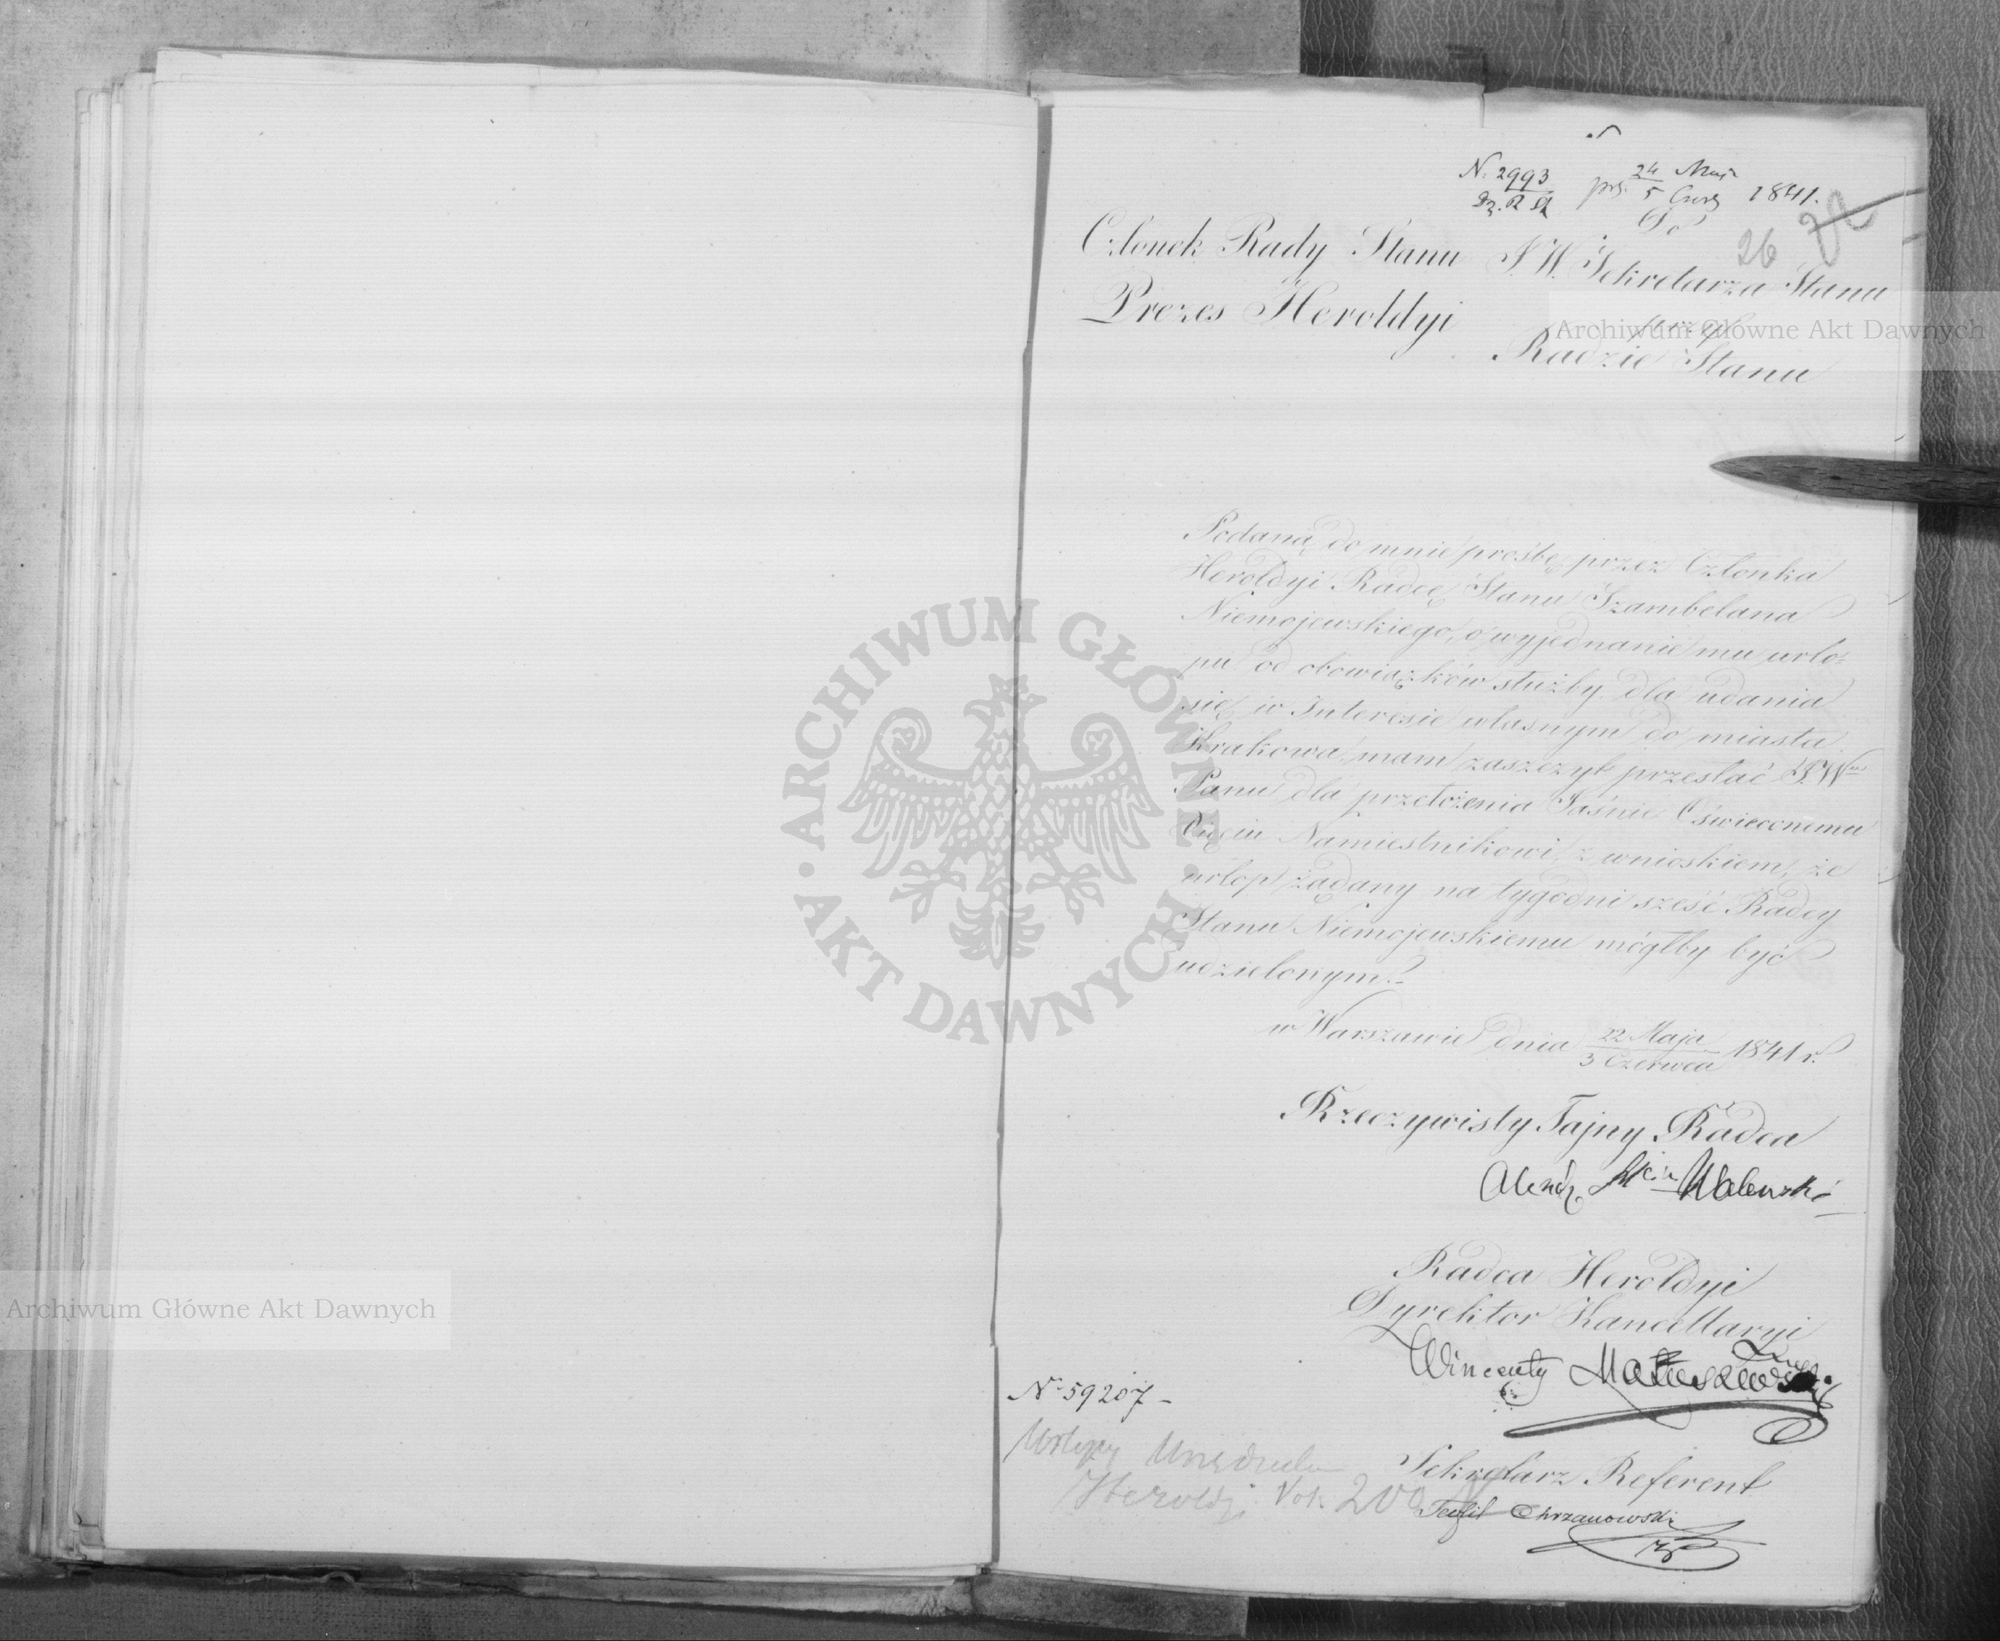 N. 2993 prs. 24 Maja 1841.
Dz. R. St. 5 Czerw
26
Członek Rady Stanu
Prezes Heroldyi
Do
J.W. Sekretarza Stanu
przy
Radzie Stanu
Podaną do mnie prośbę przez Członka
Heroldyi Radcę Stanu Szambelana
Niemojewskiego, o wyjednanie mu urlo-
pu od obowiązków służby dla udania
się w Interesie własnym do miasta
Krakowa mam zaszczyt przesłać J.W.
Panu dla przełożenia Jaśnie Oświeconemu
Xięciu Namiestnikowi z wnioskiem, że
urlop żądany na tygodni sześć Radcy
Stanu Niemojewskiemu mógłby być
udzielonym.
w Warszawie dnia 22 Maja
3 Czerwca 1841 r.
Rzeczywisty Tajny Radca
Alexdr Walewski
Radca Heroldyi
Dyrektor Kancellaryi
Wincenty Matuszewski
No 59207
Urlopy Urzędników
Heroldyi Vol. 200
Sekretarz Referent
Teofil Chrzanowski
Archiwum Główne Akt Dawnych
Archiwum Główne Akt Dawnych
ARCHIWUM GŁÓWNE
AKT DAWNYCH